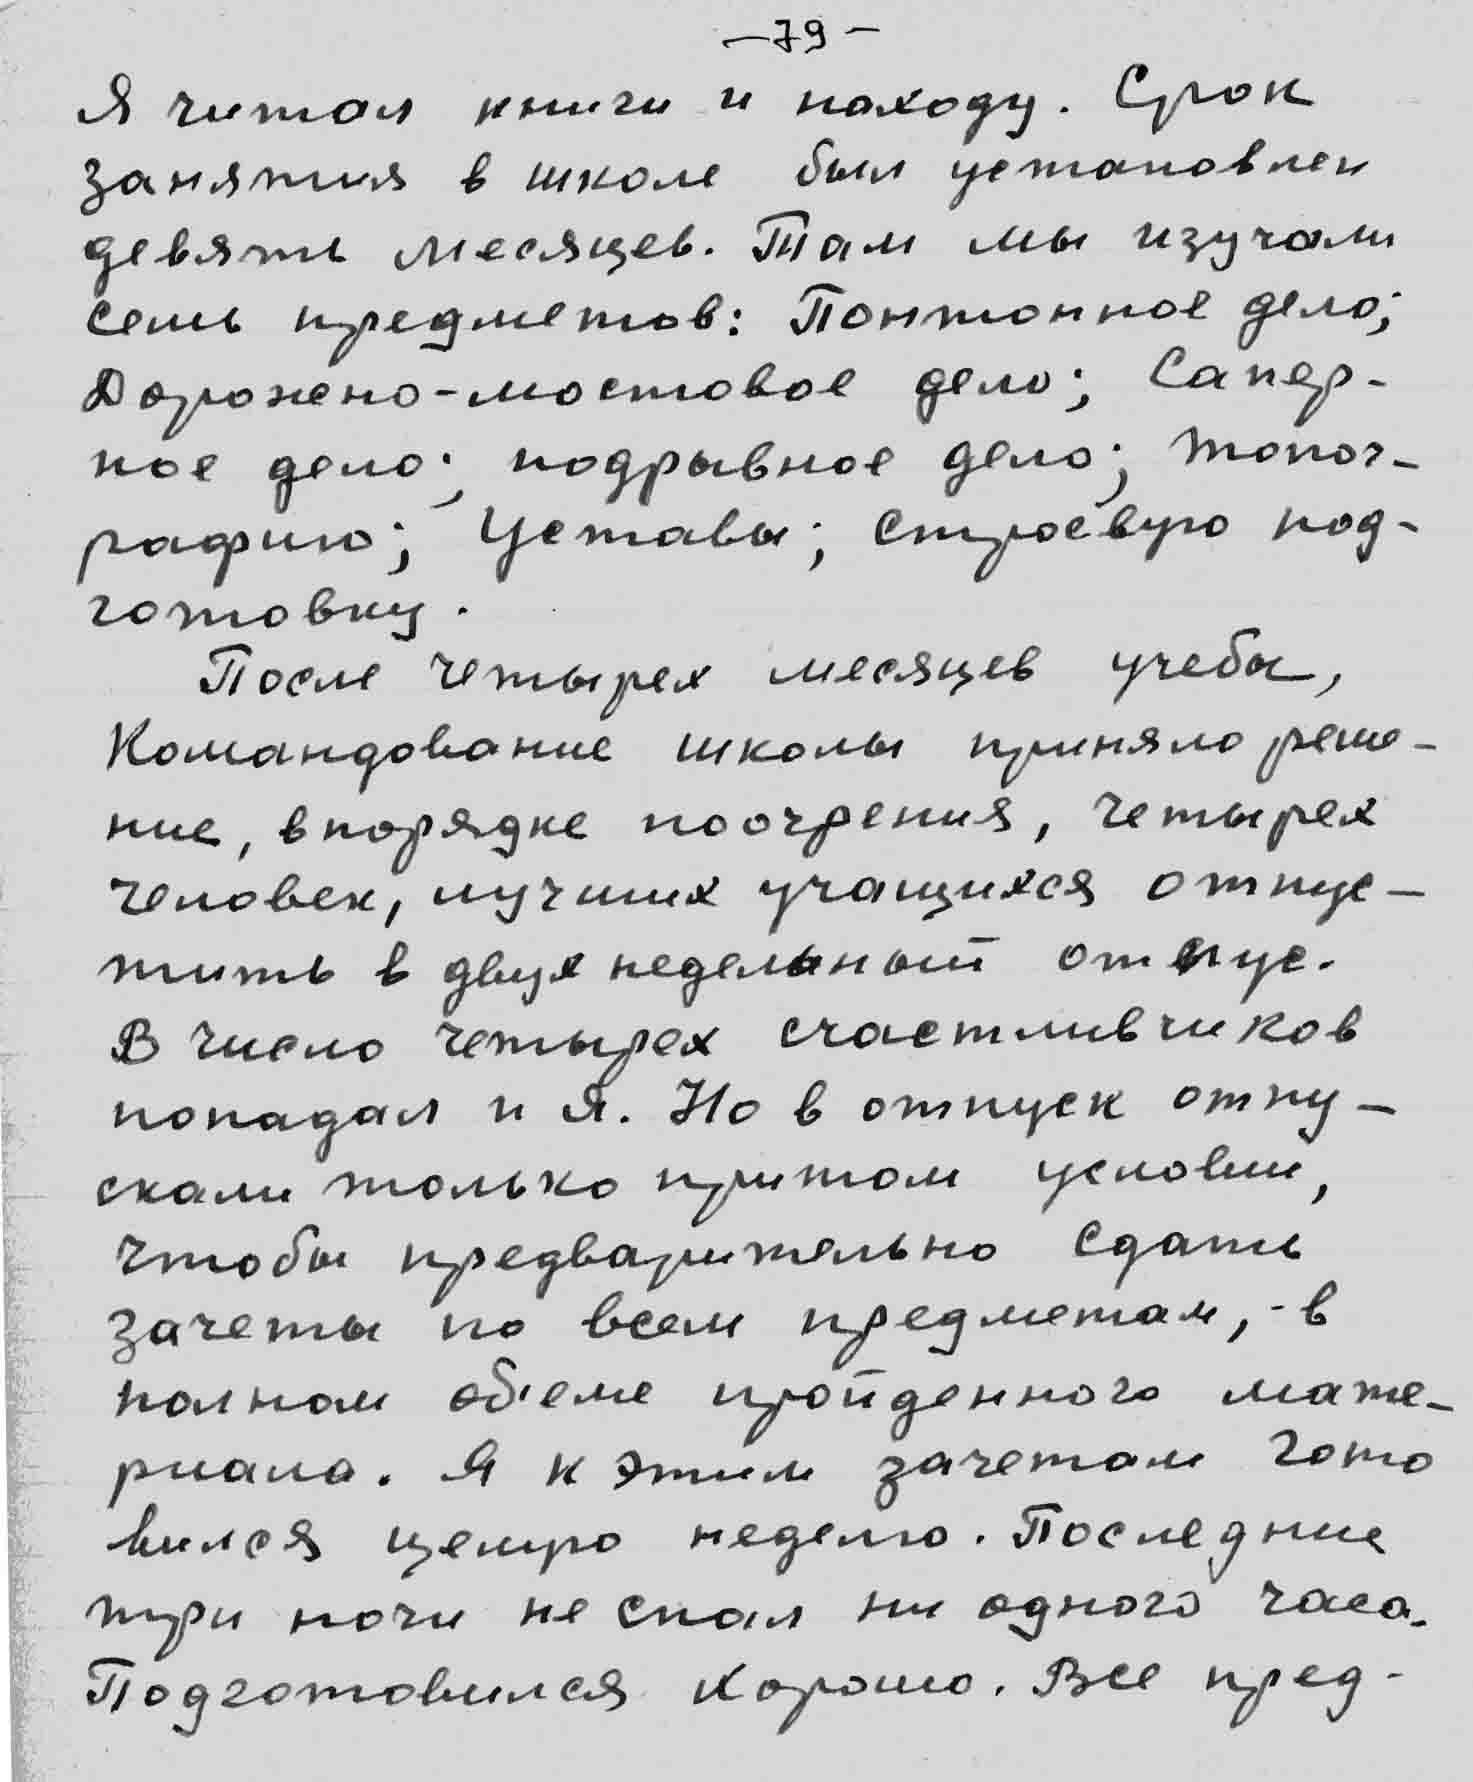 —79—
Я читал книги и находу. Срок
занятия в школе был установлен
девять месяцев. Там мы изучали
семь предметов: Понтонное дело;
Дорожено-мостовое дело; Сапер-
ное дело; подрывное дело; топог-
рафию; Уставы; строевую под-
готовку.
После четырех месяцев учебы,
Командование школы приняло реше-
ние, в порядке поочрения, четырех
человек, лучших учащихся отпус-
тить в двух недельный отпус.
В число четырех счастливчиков
попадал и я. Но в отпуск отпу-
скали только притом условии,
чтобы предварительно сдать
зачеты по всем предметам, - в
полном об'еме пройденного мате-
риала. Я к этим зачетам гото
вился целую неделю. Последние
три ночи не спал ни одного часа.
Подготовился хорошо. Все пред-